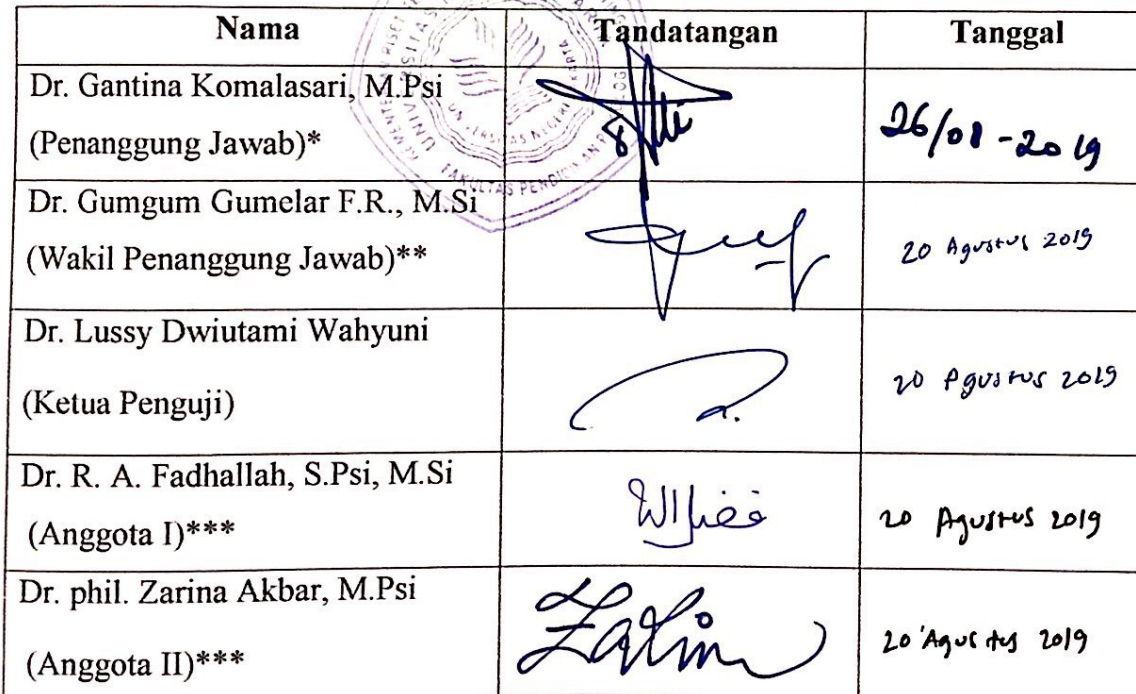 Nama Tandatangan Tanggal
Dr. Gantina Komalasari, M.Psi
(Penanggung Jawab)* 26/08-2019
Dr. Gumgum Gumelar F.R., M.Si
(Wakil Penanggung Jawab)** 20 Agustus 2019
Dr. Lussy Dwiutami Wahyuni
(Ketua Penguji) 20 Agustus 2019
Dr. R. A. Fadhallah, S.Psi, M.Si
(Anggota I)*** 20 Agustus 2019
Dr. phil. Zarina Akbar, M.Psi
(Anggota II)*** 20 Agustus 2019
FAKULTAS PENDIDIKAN